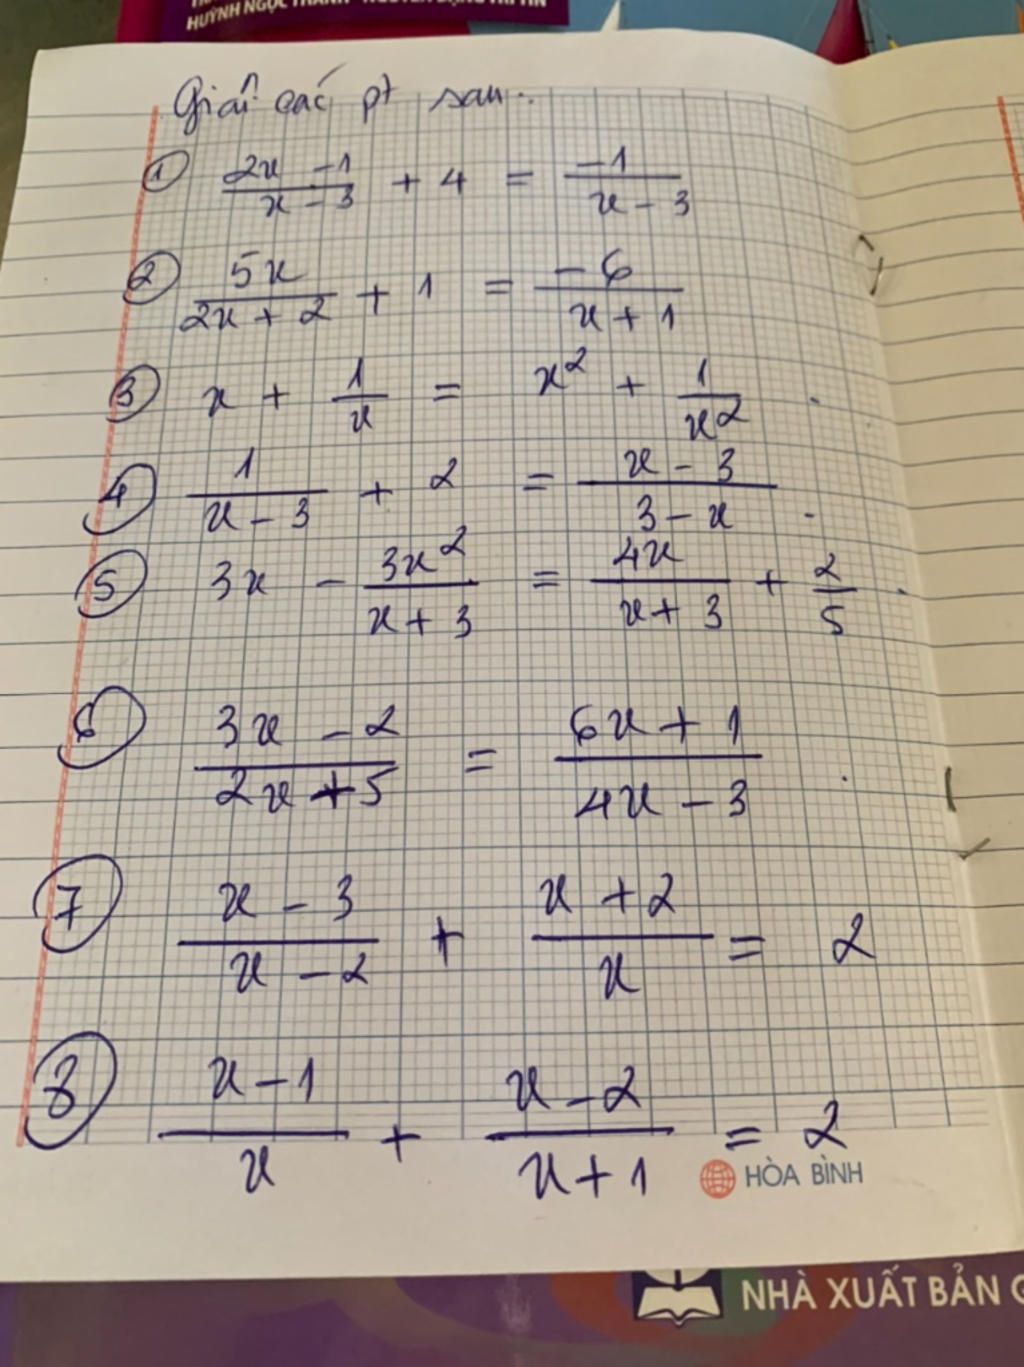 HUỲNH NGỌC THANH - NGUYỄN ĐẶNG TRÍ TÍN
Giải các pt sau:
① (2x - 1)/(x - 3) + 4 = (-1)/(x - 3)
② 5x/(2x + 2) + 1 = (-6)/(x + 1)
③ x + 1/x = x² + 1/x²
④ 1/(x - 3) + 2 = (x - 3)/(3 - x)
⑤ 3x - 3x²/(x + 3) = 4x/(x + 3) + 2/5
⑥ (3x - 2)/(2x + 5) = (6x + 1)/(4x - 3)
⑦ (x - 3)/(x - 2) + (x + 2)/x = 2
⑧ (x - 1)/x + (x - 2)/(x + 1) = 2
HÒA BÌNH
NHÀ XUẤT BẢN G